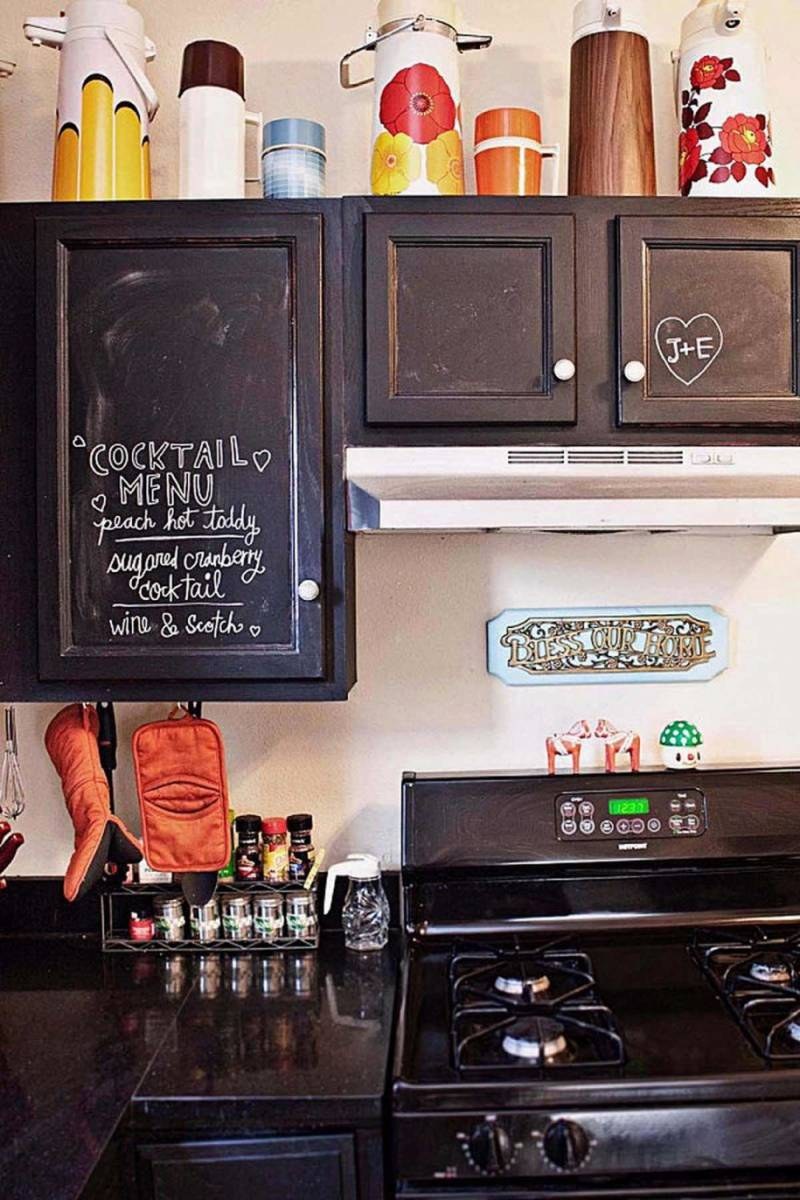 J+E
COCKTAIL
MENU
peach hot toddy
sugared cranberry
cocktail
wine & scotch
BLESS OUR HOME
12:37
HOTPOINT